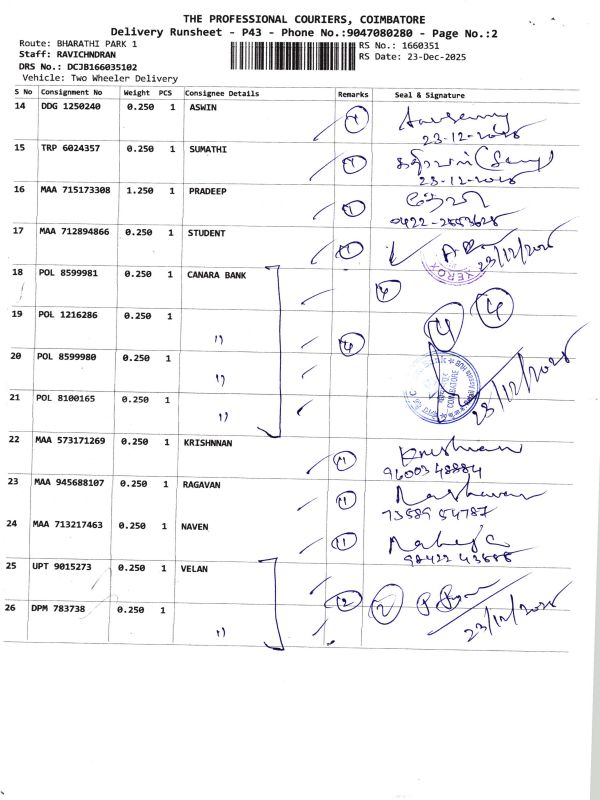 THE PROFESSIONAL COURIERS, COIMBATORE
Delivery Runsheet - P43 - Phone No.:9047080280 - Page No.:2
Route: BHARATHI PARK 1 RS No.: 1660351
Staff: RAVICHNDRAN RS Date: 23-Dec-2025
DRS No.: DCJB166035102
Vehicle: Two Wheeler Delivery
S No Consignment No Weight PCS Consignee Details Remarks Seal & Signature
14 DDG 1250240 0.250 1 ASWIN 1
23-12-2025
15 TRP 6024357 0.250 1 SUMATHI 1
23-12-2025
16 MAA 715173308 1.250 1 PRADEEP 1
17 MAA 712894866 0.250 1 STUDENT 1
XEROX 23/12/2025
18 POL 8599981 0.250 1 CANARA BANK 4
19 POL 1216286 0.250 1 " 4 4 4
20 POL 8599980 0.250 1 "
COIMBATORE 23/12/2025
21 POL 8100165 0.250 1 "
22 MAA 573171269 0.250 1 KRISHNNAN 1
96003 48884
23 MAA 945688107 0.250 1 RAGAVAN 1
73589 54787
24 MAA 713217463 0.250 1 NAVEN 1
25 UPT 9015273 0.250 1 VELAN
2 2
26 DPM 783738 0.250 1 "
23/12/2025